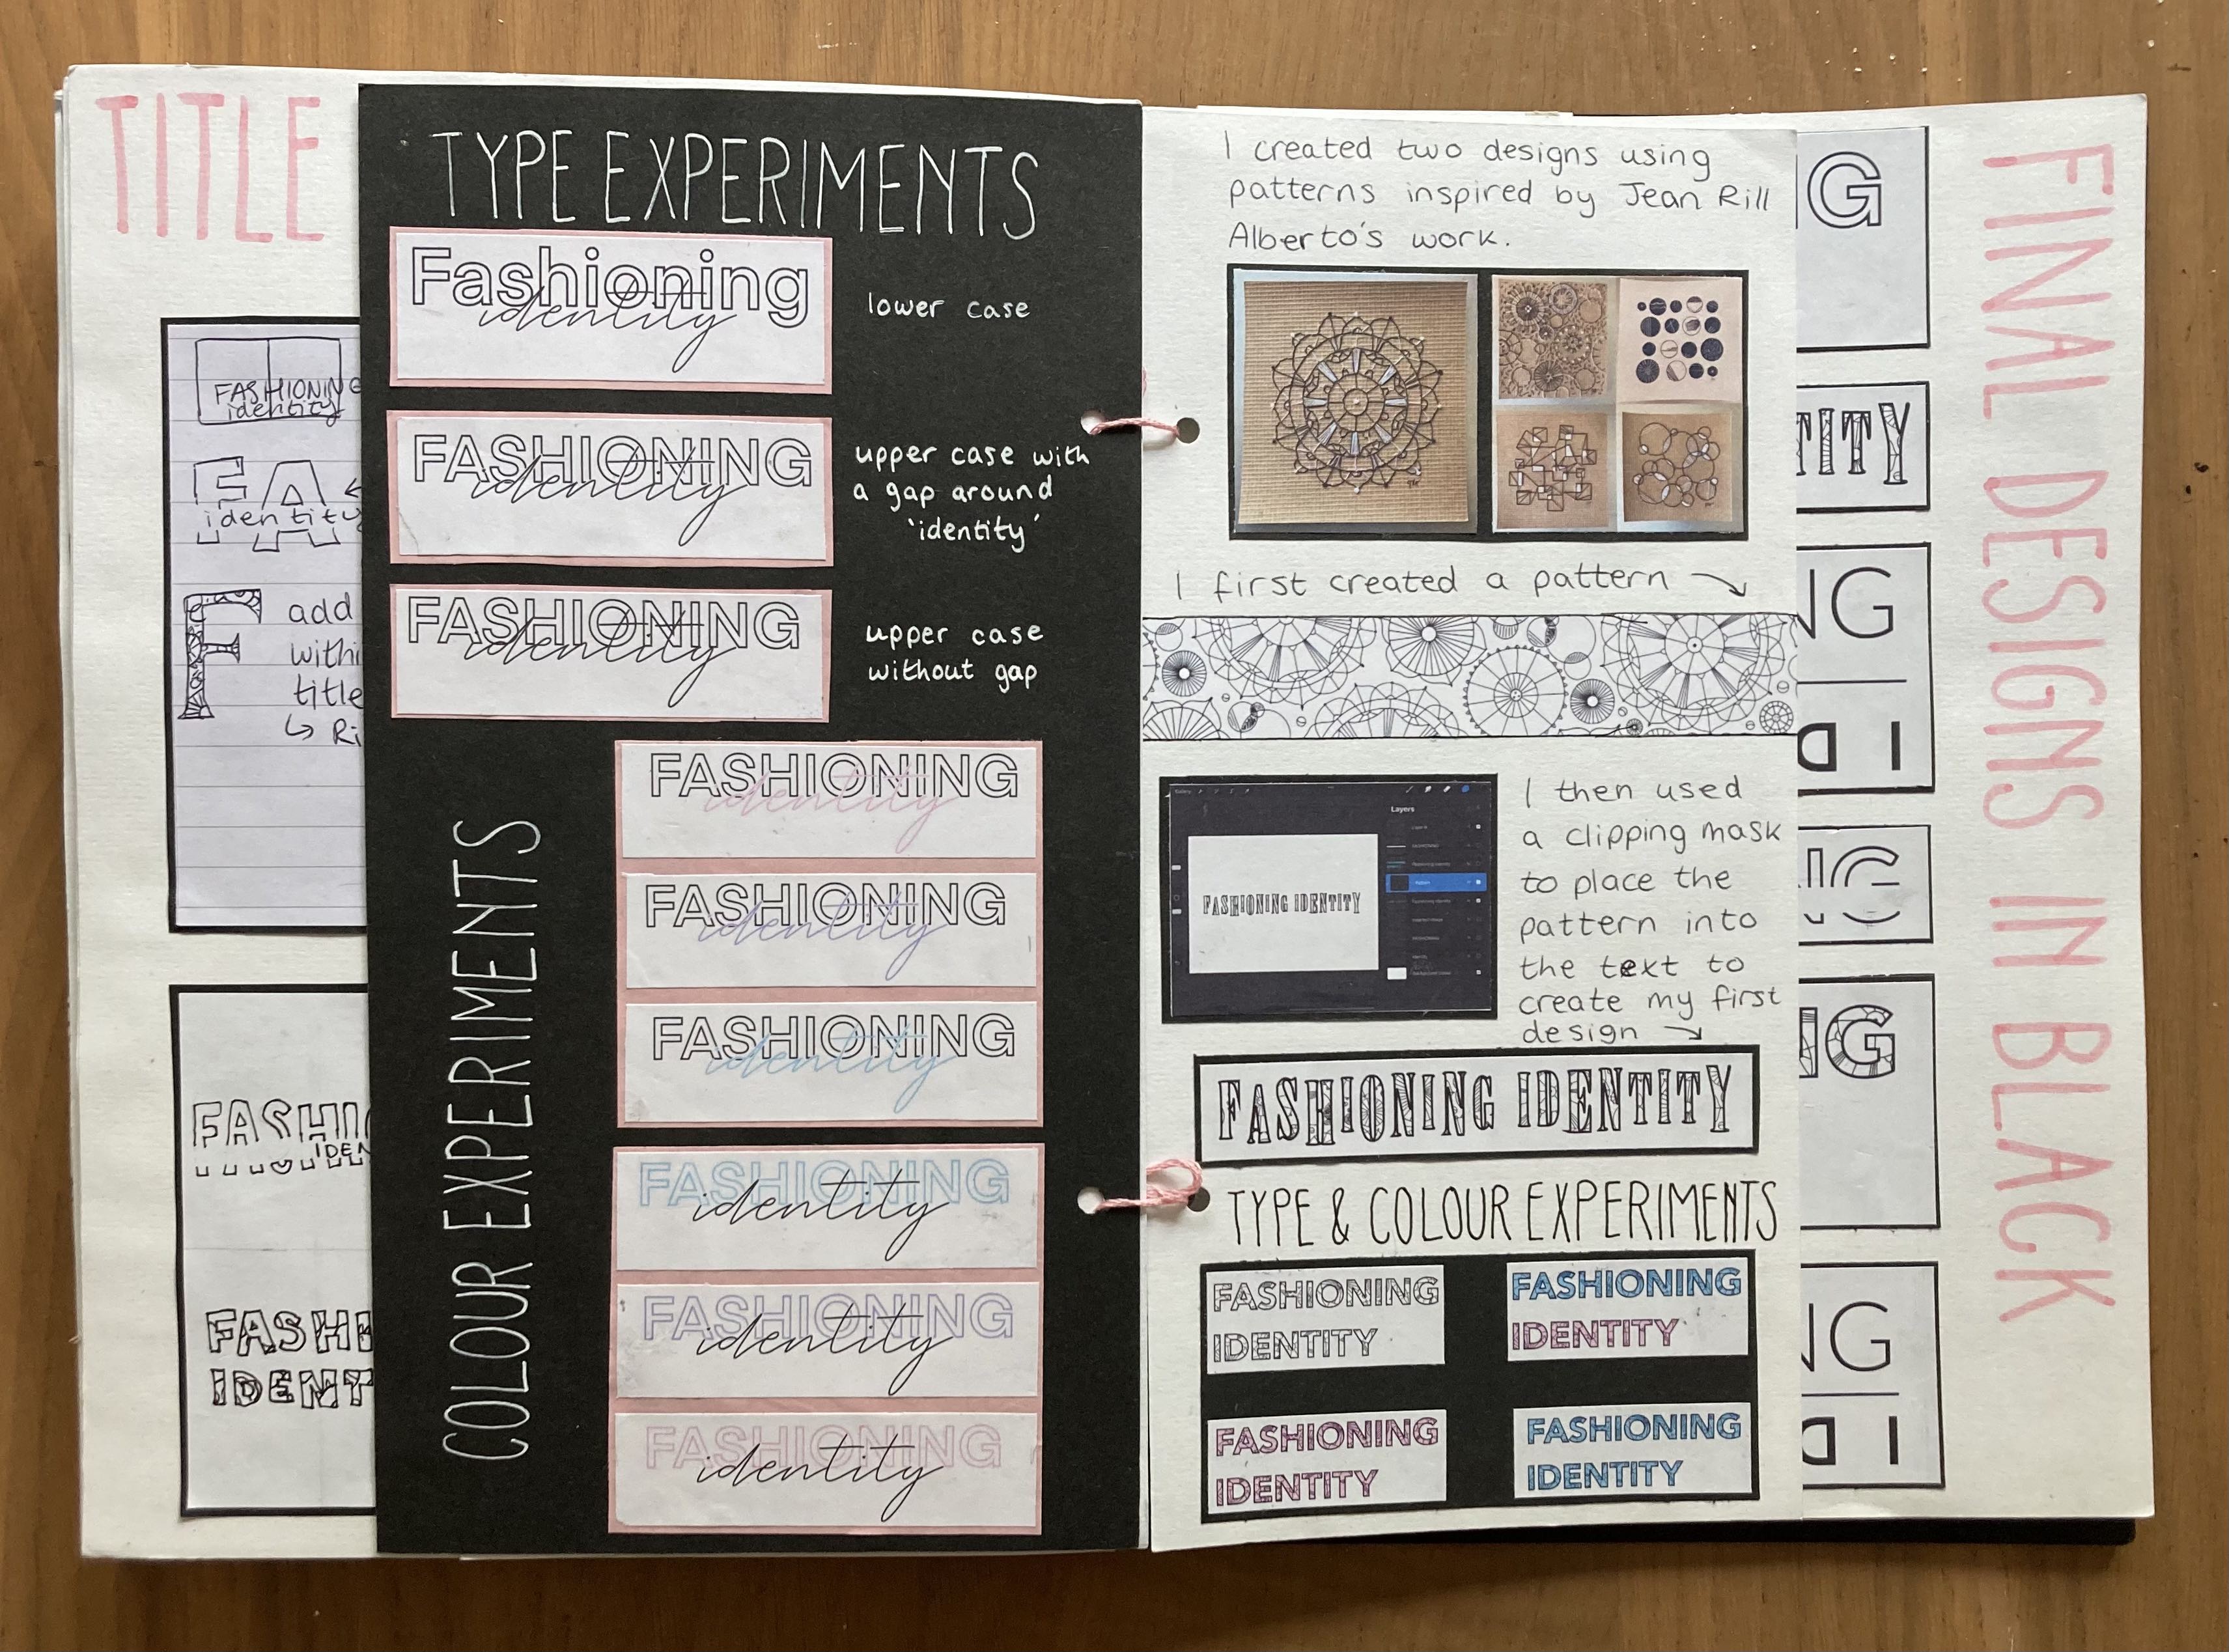 TITLE
FASHIONING
identity
FA
identity
F
add
withi
title
Ri
FASHI
IDEN
FASHI
IDENT
TYPE EXPERIMENTS
Fashioning
identity
lower case
FASHIONING
identity
upper case with
a gap around
'identity'
FASHIONING
identity
upper case
without gap
COLOUR EXPERIMENTS
FASHIONING
identity
FASHIONING
identity
FASHIONING
identity
FASHIONING
identity
FASHIONING
identity
FASHIONING
identity
I created two designs using
patterns inspired by Jean Rill
Alberto's work.
I first created a pattern
Layers
FASHIONING IDENTITY
I then used
a clipping mask
to place the
pattern into
the text to
create my first
design
FASHIONING IDENTITY
TYPE & COLOUR EXPERIMENTS
FASHIONING
IDENTITY
FASHIONING
IDENTITY
FASHIONING
IDENTITY
FASHIONING
IDENTITY
G
TITY
NG
NG
NG
FINAL DESIGNS IN BLACK